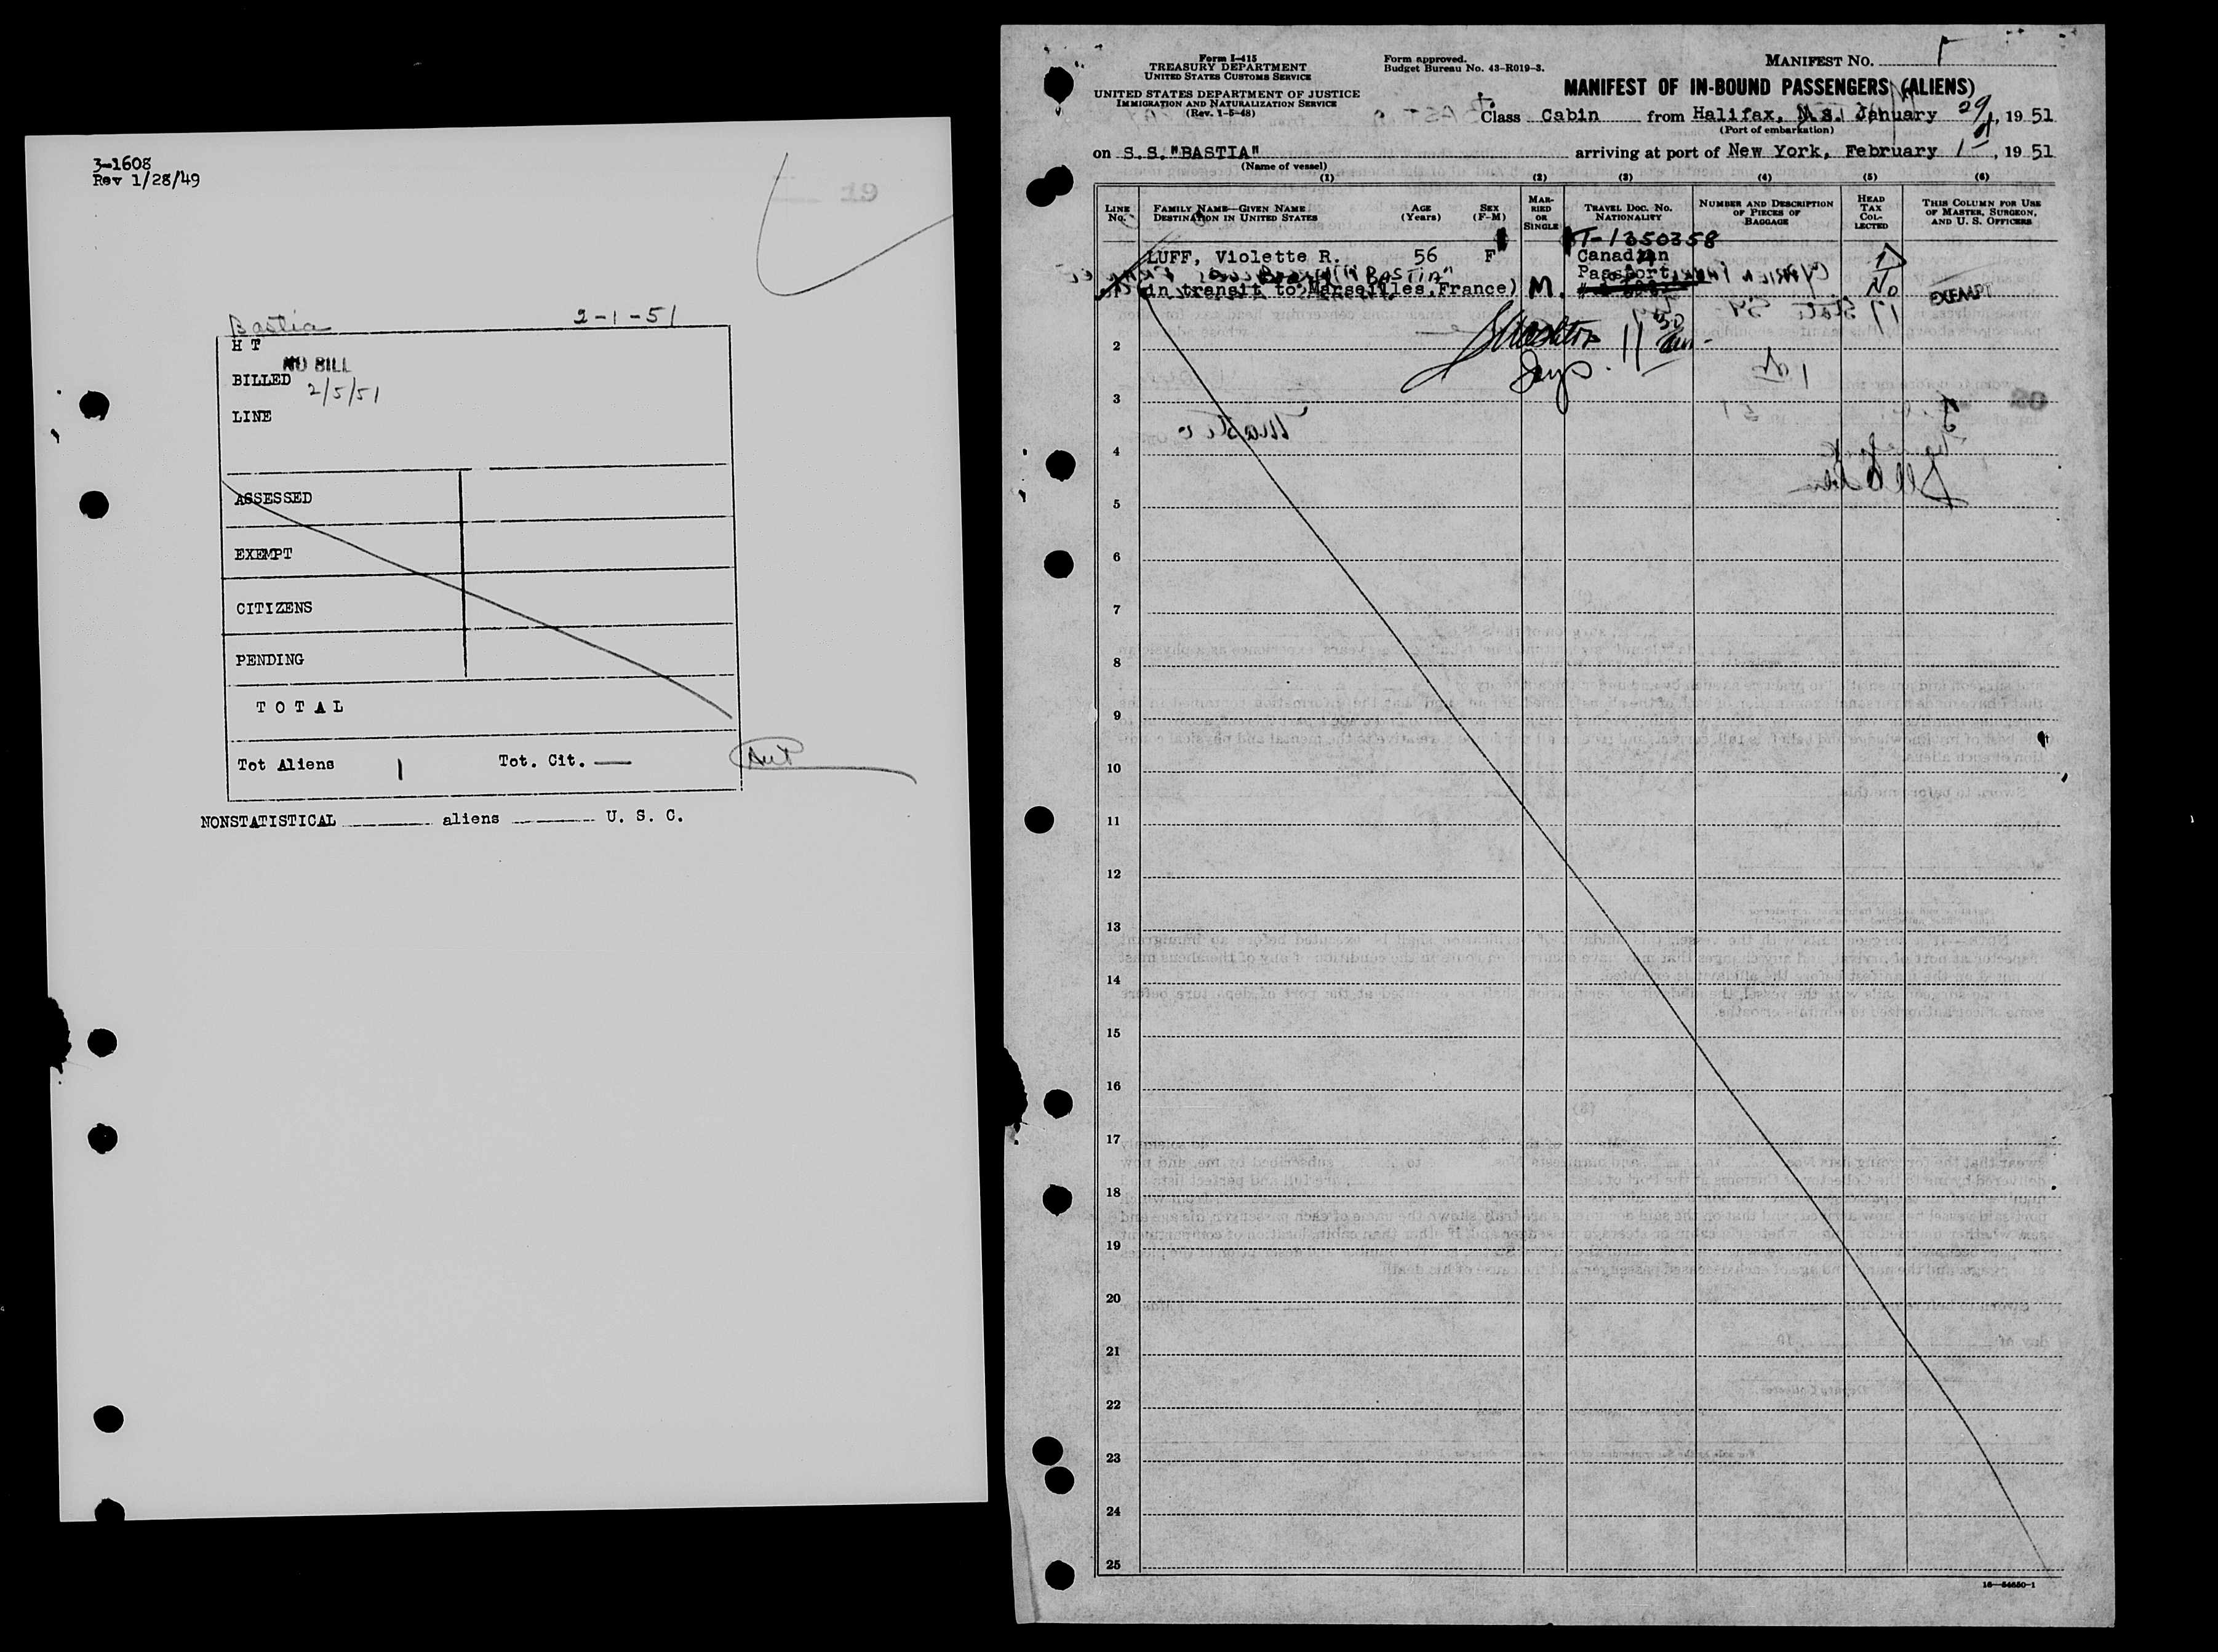 3-1608
Rev 1/28/49
Bastia 2-1-51
H T
NO BILL
BILLED 2/5/51
LINE
ASSESSED
EXEMPT
CITIZENS
PENDING
T O T A L
Tot Aliens 1 Tot. Cit. —
NONSTATISTICAL aliens U. S. C.
Form I-415
TREASURY DEPARTMENT
UNITED STATES CUSTOMS SERVICE
UNITED STATES DEPARTMENT OF JUSTICE
IMMIGRATION AND NATURALIZATION SERVICE
(Rev. 1-5-48)
Form approved.
Budget Bureau No. 43-R019-3.
MANIFEST NO.
MANIFEST OF IN-BOUND PASSENGERS (ALIENS)
Class Cabin from Halifax, N.S. January 29, 1951
(Port of embarkation)
on S.S. "BASTIA" arriving at port of New York, February 1st, 1951
(Name of vessel)
(1) (2) (3) (4) (5) (6)
LINE NO.
FAMILY NAME—GIVEN NAME
DESTINATION IN UNITED STATES
AGE (Years)
SEX (F-M)
MARRIED OR SINGLE
TRAVEL DOC. NO.
NATIONALITY
NUMBER AND DESCRIPTION OF PIECES OF BAGGAGE
HEAD TAX COLLECTED
THIS COLUMN FOR USE OF MASTER, SURGEON, AND U. S. OFFICERS
T-1350358
LUFF, Violette R. 56 F Canadian
Passport
in transit to Marseilles, France) M. No EXEMPT
2
3
4
5
6
7
8
9
10
11
12
13
14
15
16
17
18
19
20
21
22
23
24
25
16—54650-1